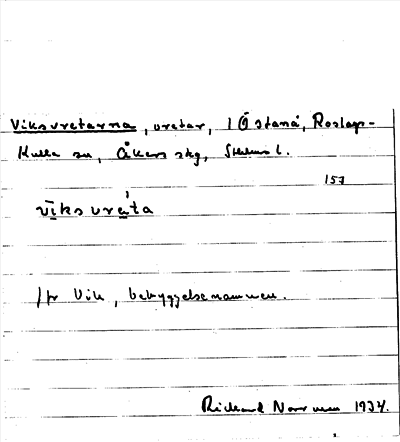 Viksvretarna, vretar, 1 Östanå, Roslags-
Kulla sn, Åkers skg, Sthlms l.
153
vīksvrèta
Jfr Vik, bebyggelsenamnen.
Rickard Norrman 1934.